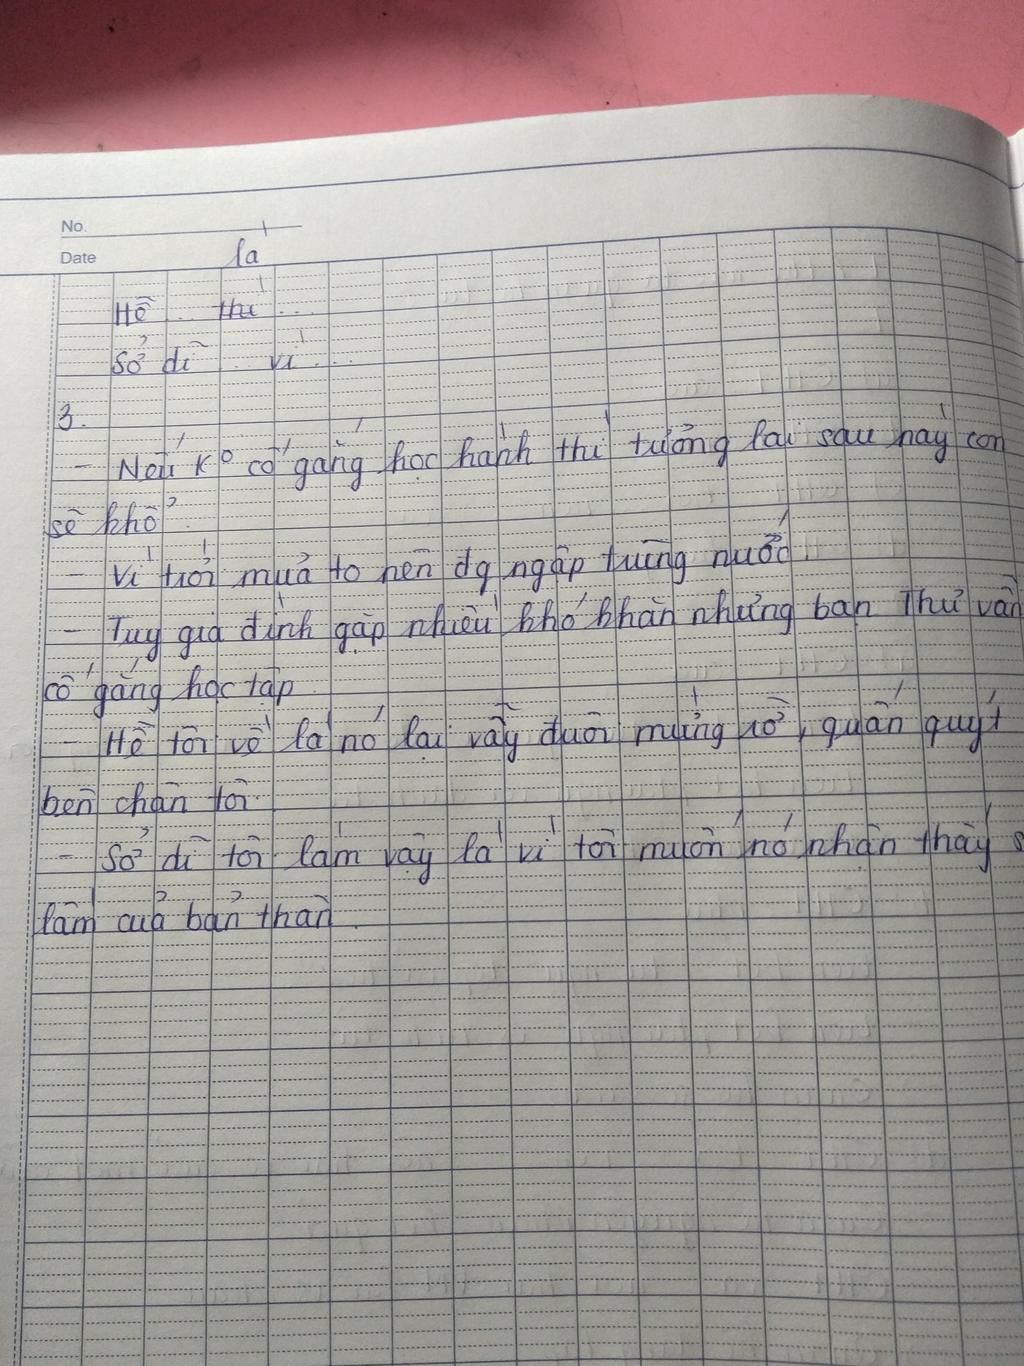 No.
Date
là
Hễ ... thì ...
Sở dĩ ... vì ...
3.
- Nếu k° cố gắng học hành thì tương lai sau này con
sẽ khổ.
- Vì trời mưa to nên đg ngập trũng nước.
- Tuy gia đình gặp nhiều khó khăn nhưng bạn Thư vẫn
cố gắng học tập
- Hễ tôi về là nó lại vẫy đuôi mừng rỡ, quấn quýt
bên chân tôi.
- Sở dĩ tôi làm vậy là vì tôi muốn nó nhận thấy s
lầm của bản thân.